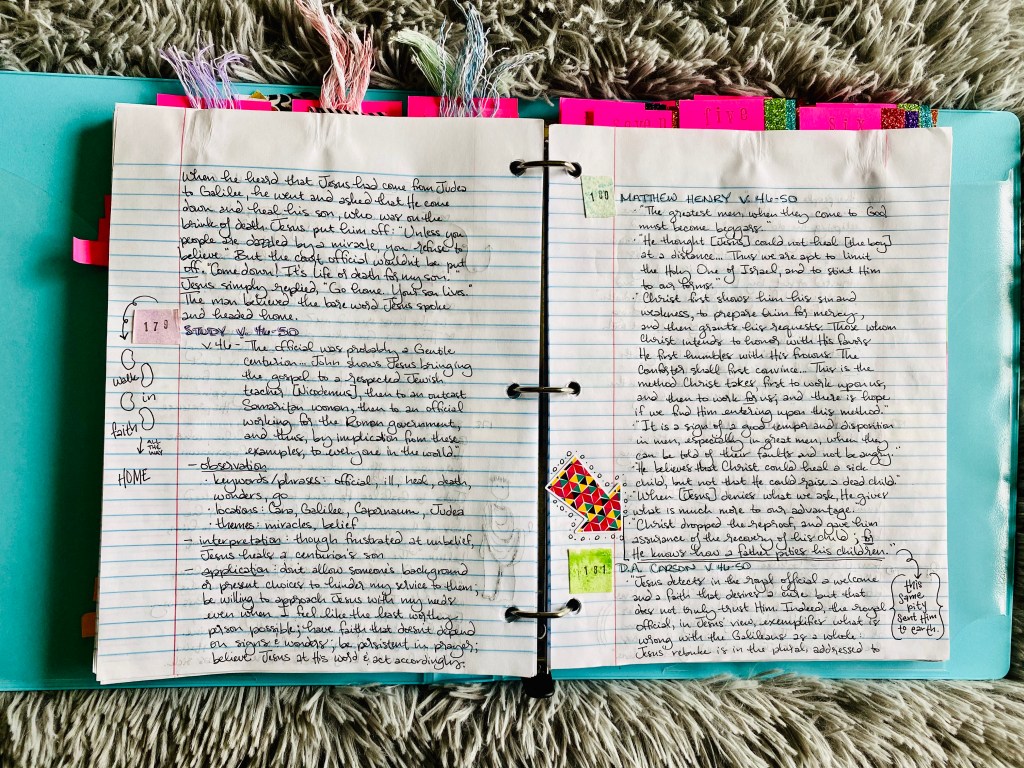 seven
five
six
When he heard that Jesus had come from Judea
to Galilee, he went and asked that He come
down and heal his son, who was on the
brink of death. Jesus put him off: "Unless you
people are dazzled by a miracle, you refuse to
believe." But the court official wouldn't be put
off. "Come down! It's life or death for my son."
Jesus simply replied, "Go home. Your son lives."
The man believed the bare word Jesus spoke
and headed home.
179
STUDY V. 46-50
v. 46 - The official was probably a Gentile
centurion... John shows Jesus bringing
the gospel to a respected Jewish
teacher [Nicodemus], then to an outcast
Samaritan woman, then to an official
working for the Roman government,
and thus, by implication from these
examples, to everyone in the world.
- observation
· keywords/phrases: official, ill, heal, death,
wonders, go
· locations: Cana, Galilee, Capernaum, Judea
· themes: miracles, belief
- interpretation: though frustrated at unbelief,
Jesus heals a centurion's son
- application: don't allow someone's background
or present choices to hinder my service to them;
be willing to approach Jesus with my needs
even when I feel like the least worthy
person possible; have faith that doesn't depend
on signs & wonders; be persistent in prayer;
believe Jesus at His word & act accordingly;
walk
in
faith
ALL
THE
WAY
HOME
180
MATTHEW HENRY V. 46-50
· "The greatest men, when they come to God
must become beggars."
· "He thought [Jesus] could not heal [the boy]
at a distance... Thus we are apt to limit
the Holy One of Israel, and to stint Him
to our forms."
· "Christ first shows him his sin and
weakness, to prepare him for mercy,
and then grants his requests. Those whom
Christ intends to honor with His favors
He first humbles with His frowns. The
Comforter shall first convince... This is the
method Christ takes, first to work upon us,
and then to work for us; and there is hope
if we find Him entering upon this method."
· "It is a sign of a good temper and disposition
in men, especially in great men, when they
can be told of their faults and not be angry."
· "He believes that Christ could heal a sick
child, but not that He could raise a dead child."
· "When [Jesus] denies what we ask, He gives
what is much more to our advantage.
· "Christ dropped the reproof, and gave him
assurance of the recovery of his child; for
He knows how a father pities his children."
181
D.A. CARSON V. 46-50
· "Jesus detects in the royal official a welcome
and a faith that desires a cure but that
does not truly trust Him. Indeed, the royal
official, in Jesus' view, exemplifies what is
wrong with the Galileans as a whole:
Jesus' rebuke is in the plural, addressed to
this
same
pity
sent Him
to earth.